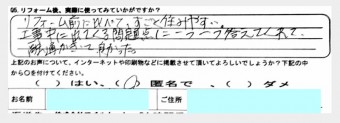 Q5. リフォーム後、実際に使ってみていかがですか?
リフォーム前に比べて、すごく住みやすい。
工事中に出てくる問題点に一つ一つ答えてくれて、
融通がきいて良かった
上記のお声について、インターネットや印刷物などに掲載させて頂いてよろしいでしょうか? 下記の中から○を付けてください。
( )はい、( )匿名で、( )ダメ
お名前 ご住所